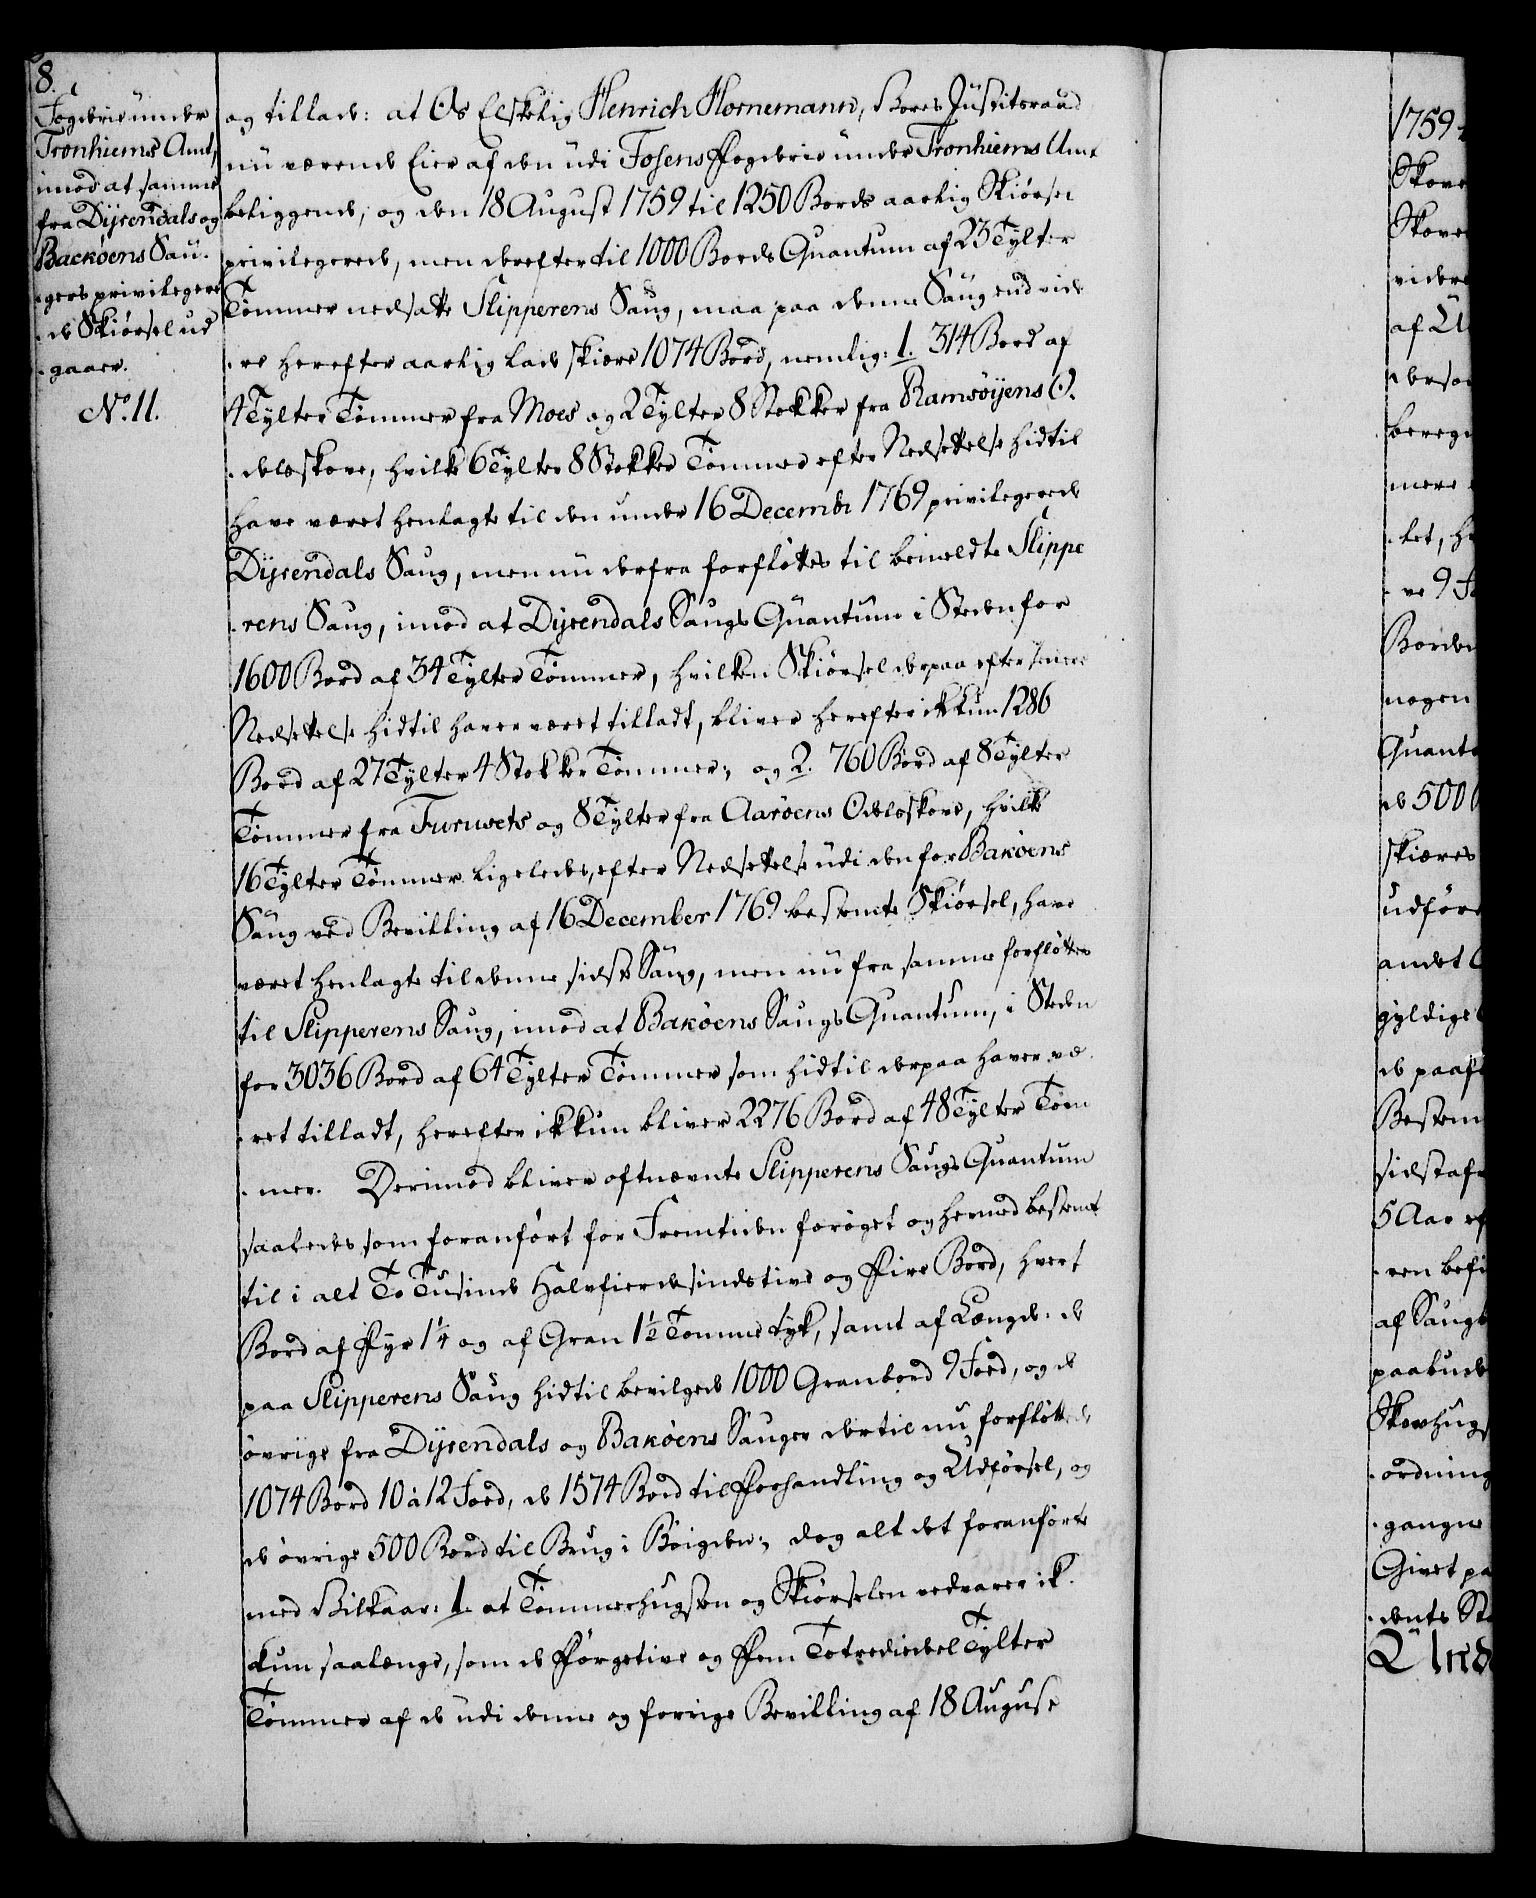 8.
Fogderie under
Tronhiems Amt,
imod at samme
fra Dÿrendals og
Backøens Sau-
-gers privilegere
-de Skiørsel ud
-gaaer.
No. 11.
og tillade: at Os Elskelig Henrich Hornemann, Vores Justitsraad
nu værende Eier af den udi Fosens Fogderie under Tronhiems Amt
beliggende, og den 18 August 1759 til 1250 Bords aarlig Skiørsel
privilegerede, men derefter til 1000 Bords Quantum af 23 Tylter
Tømmer nedsatte Slipperens Saug, maa paa denne Saug end vide
-re herefter aarlig lade skiære 1074 Bord, nemlig: 1. 314 Bord af
4 Tylter Tømmer fra Moes og 2 Tylter 8 Stokker fra Ramsøÿens O-
-delsskove, hvilke 6 Tylter 8 Stokker Tømmer efter Nedsettelse hidtil
have været henlagte til den under 16 Decembr 1769 privilegerede
Dÿrendals Saug, men nu derfra forfløttes til bemeldte Slippe
-rens Saug, imod at Dÿrendals Saugs Quantum i Steden for
1600 Bord af 34 Tylter Tømmer, hvilken Skiørsel derpaa efter senere
Nedsettelse hidtil haver været tilladt, bliver herefter ikkun 1286
Bord af 27 Tylter 4 Stokker Tømmer; og 2. 760 Bord af 8 Tylter
Tømmer fra Furusets og 8 Tylter fra Aarøens Odelsskove, hvilke
16 Tylter Tømmer ligeledes, efter Nedsettelse udi den for Bakøens
Saug ved Bevilling af 16 December 1769 bestemte Skiørsel, have
været henlagte til denne sidste Saug, men nu fra samme forfløttes
til Slipperens Saug, imod at Bakøens Saugs Quantum, i Steden
for 3036 Bord af 64 Tylter Tømmer som hidtil derpaa haver væ-
-ret tilladt, herefter ikkun bliver 2276 Bord af 48 Tylter Tøm
-mer. Derimod bliver oftnævnte Slipperens Saugs Quantum
saaledes som foranført for Fremtiden forøget og hermed bestemt
til i alt To Tusinde Halvfierdesindstive og Fire Bord, hvert
Bord af Fyr 1 1/4 og af Gran 1 1/2 Tomme tyk, samt af Længde: de
paa Slipperens Saug hidtil bevilgede 1000 Granbord 9 Fod, og de
øvrige fra Dÿrendals og Bakøens Sauger dertil nu forfløttede
1074 Bord 10 à 12 Fod, de 1574 Bord til Forhandling og Udførsel, og
de øvrige 500 Bord til Brug i Bøigden; dog alt det foranførte
med Vilkaar: 1. at Tømmerhugsten og Skiørselen vedvarer ik-
-kun saalænge, som de Førgetive og Fem Totrediedel Tylter
Tømmer af de udi denne og forrige Bevilling af 18 August
1759
Skove
Skove
videre
af
bereg
mere
-let,
-re 9
Borde
nogen
Quant
de 500
skiæres
udføre
andet
gyldige
de paaf
Bestem
sidstaf
5 Aar ef
-ren befi
af Saug
paabude
Skovhugs
-ordning
-gangne
Givet pa
-dents St
Und